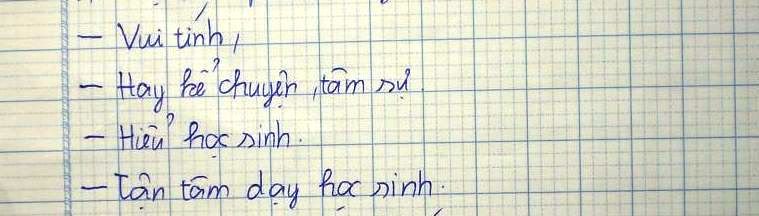 - Vui tính,
- Hay kể chuyện, tâm sự.
- Hiểu học sinh.
- Tận tâm dạy học sinh.